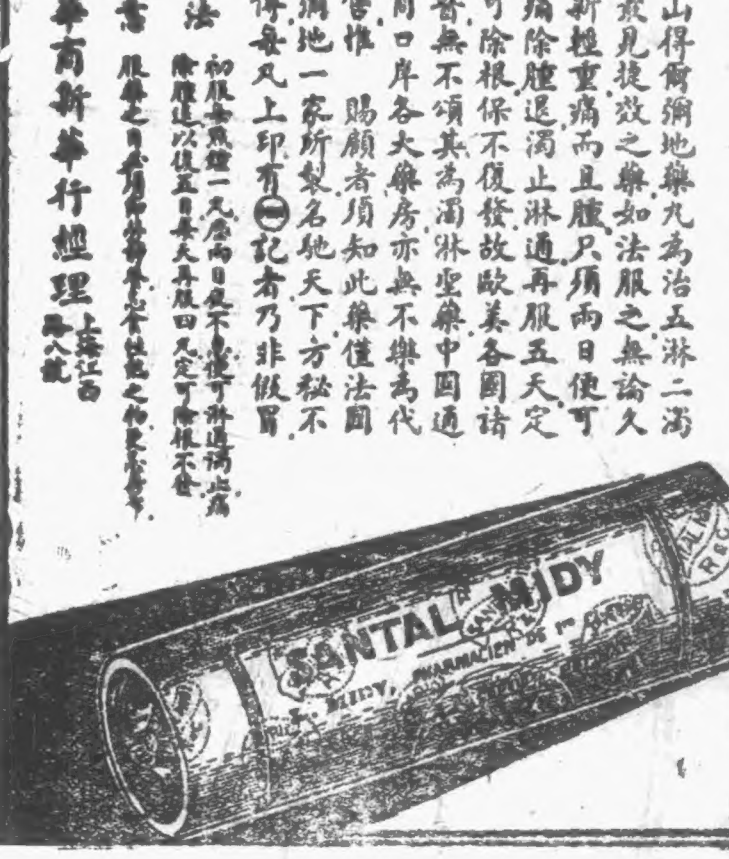 山得爾彌地藥丸為治五淋二濁
最見捷效之藥如法服之無論久
新輕重痛而且腫只須兩日便可
痛除腫退濁止淋通再服五天定
可除根保不復發故歐美各國諸
醫無不頌其為濁淋聖藥中國通
商口岸各大藥房亦無不樂為代
售惟 賜顧者須知此藥僅法國
彌地一家所製名馳天下方秘不
傳每丸上印有 記者乃非假冒
法 初服每
痛
除腫退以後五日每天再服四丸定可除根不發
意 服藥之
華商新華行經理 上海江西
路八號
SANTAL MIDY
MIDY, PHARMACIEN DE 1re CLASSE